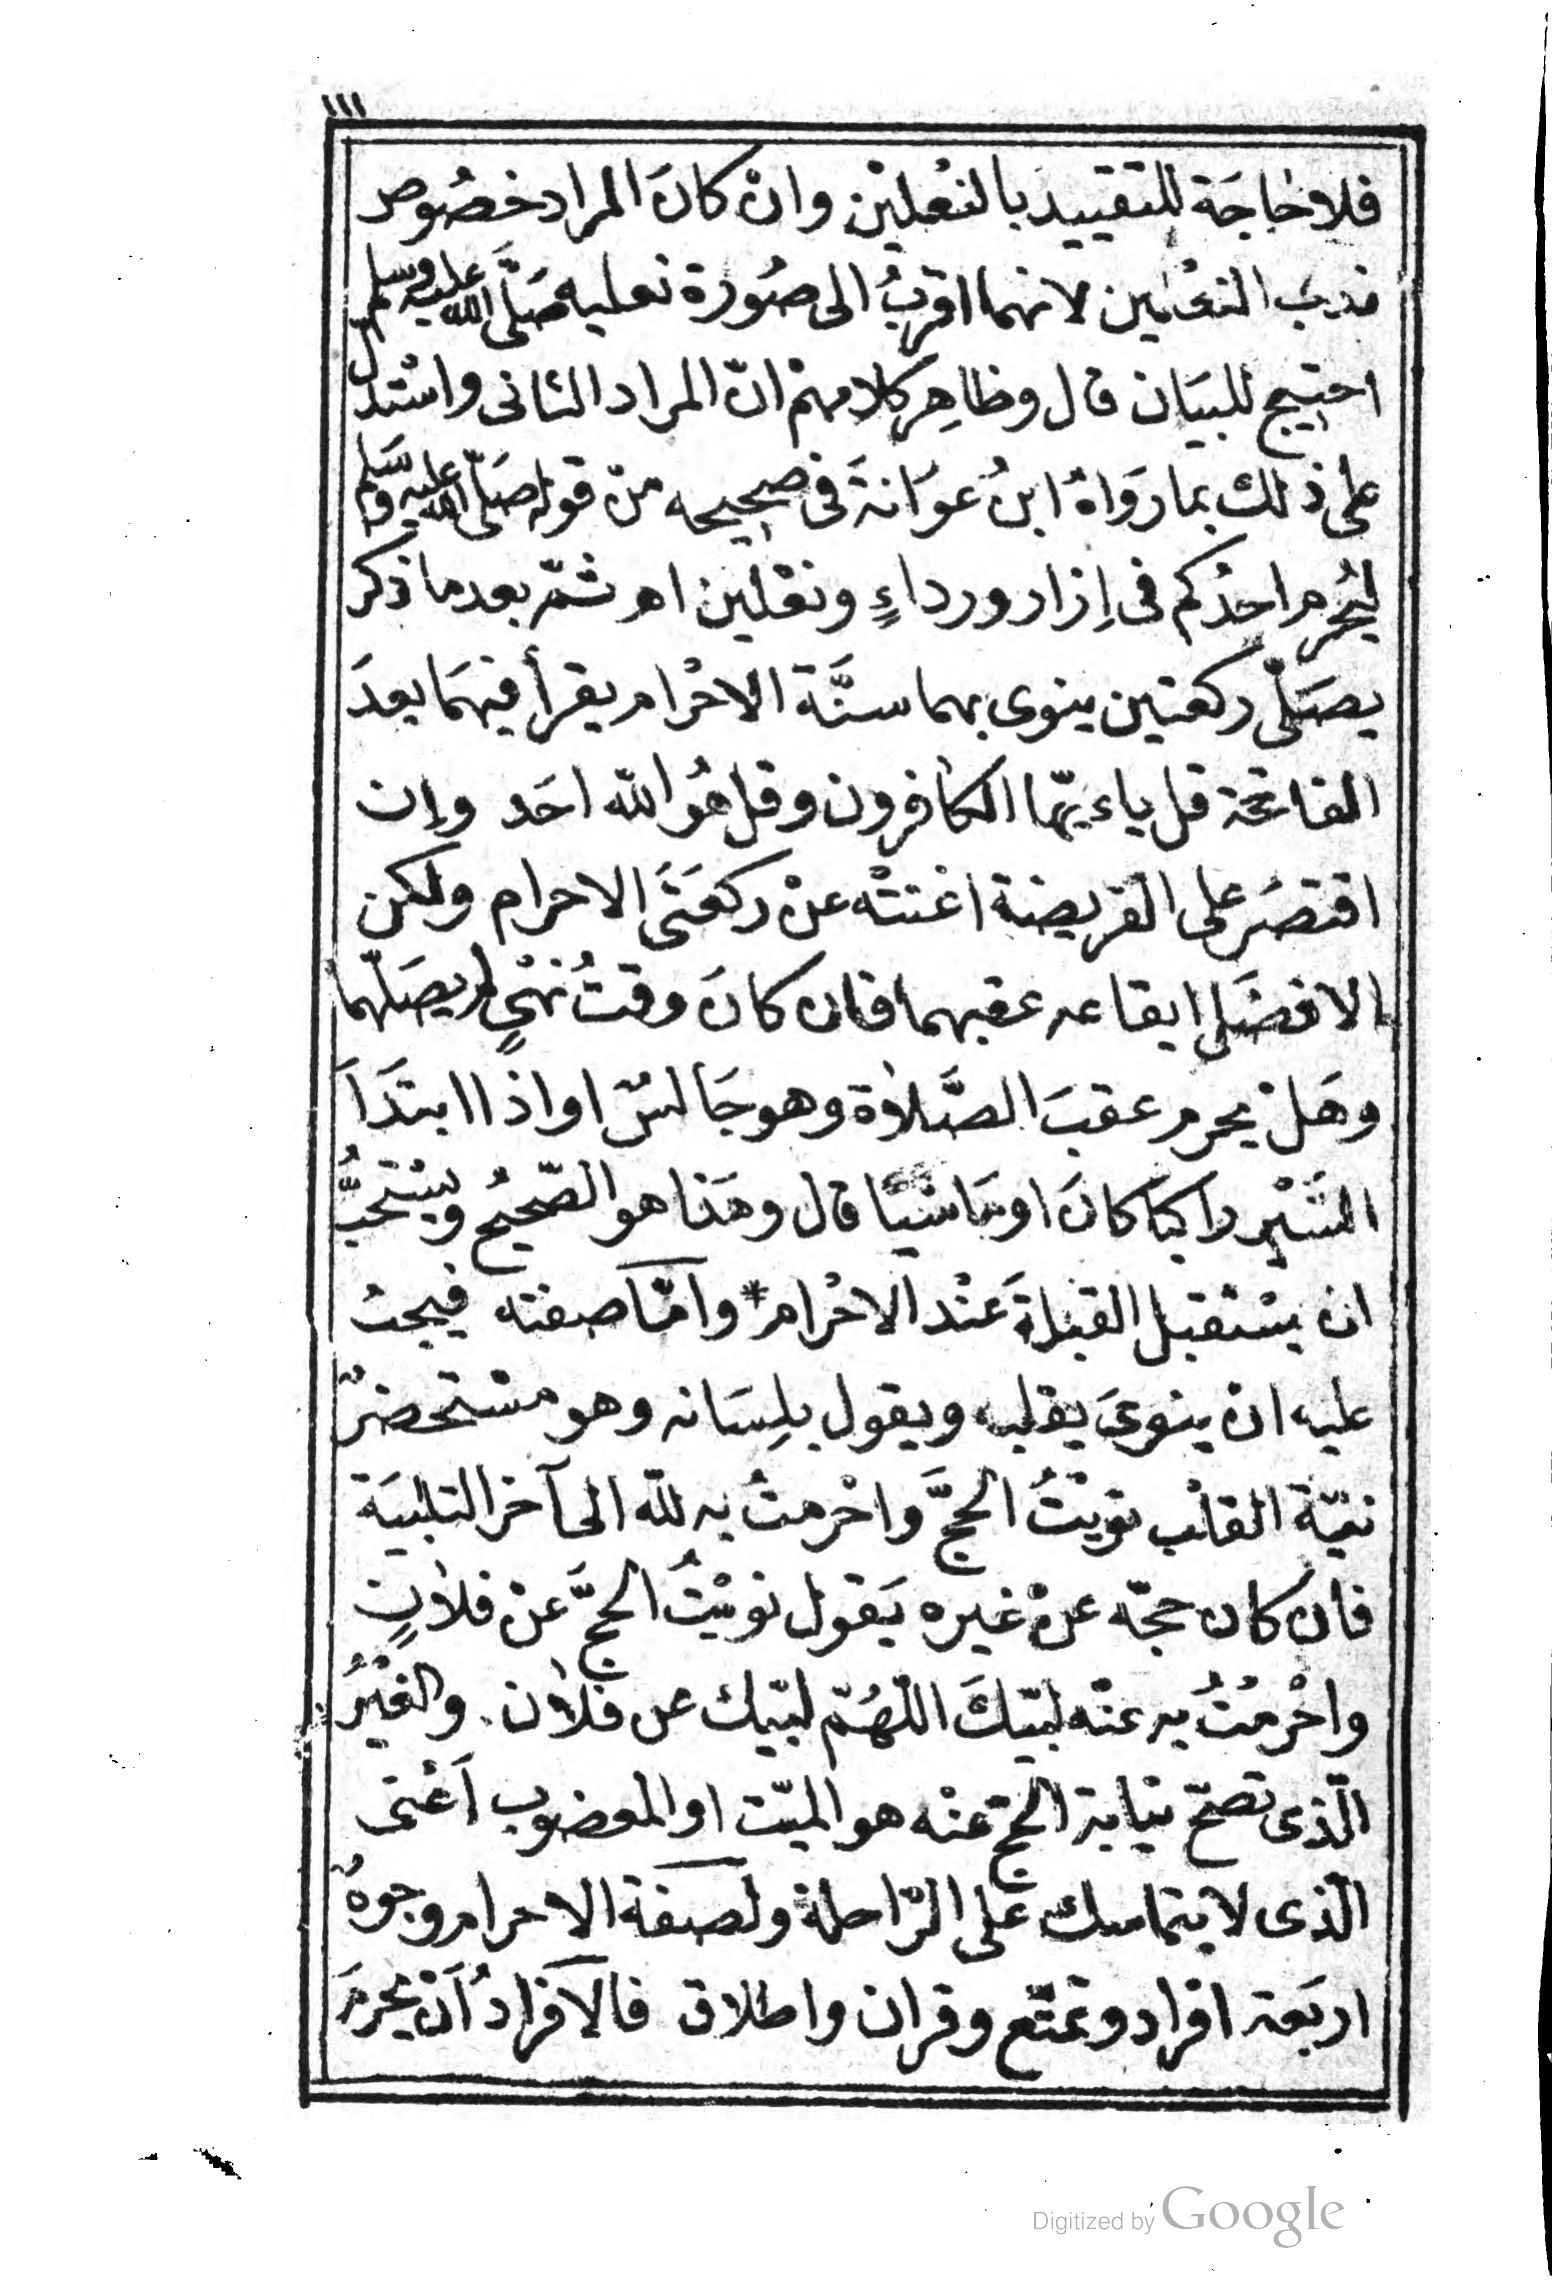 ١١١
فلا حٰاجَة للتقييد بالنعْليْن وانْ كانَ المراد خصُوص
ندب النعْلين لانهما اقربُ الى صُورة نعليه صَلّى الله عَليه وسلم
احتيج للبيَان قال وظاهِر كلامهمْ انّ المراد الثانى واسْتدلّ
على ذلك بما رَوَاهُ ابنُ عوَانةَ فى صحيحه منْ قوله صَلّى الله عليه وسَلم
ليُحْرِم احدُكم فى اِزار ورداءٍ ونعْلين اه ثمّ بعد ما ذكر
يصَلّى ركعتين ينوى بهما سنَّة الاحْرام يقرأ فيهمَا بعدَ
الفاتحة قل ياءيّها الكافرون وقل هُو الله احَد وإن
اقتصَر على الفريضة اغنتْه عنْ ركعَتَى الاحرام ولكن
الافضَل ايقاعه عقبهما فان كانَ وقتُ نهْىٍ لم يصَلّهما
وهَلْ يحرم عقبَ الصَّلاٰة وهو جَالسٌ او اذا ابتدَاَ
السَّيْر راكبًا كانَ او ماشيًا قال وهَذا هو الصّحيحُ ويسْتحَبُّ
انْ يسْتقبل القبلةَ عنْد الاحْرام * وامّا صفته فيجبُ
عليه انْ ينوىَ بقلبه ويقول بلِسَانه وهو مسْتحضرٌ
نيّة القلْب نويْتُ الحجَّ واحْرمتُ به لله الى آخر التلبيَة
فانْ كان حجّه عنْ غيره يَقول نويْتُ الحجَّ عنْ فلاٰنٍ
واحْرمْتُ به عنْه لبّيْكَ اللّهُمّ لبّيك عن فلاٰن. والغيْرُ
الّذى تصحّ نيابة الحجّ عنْه هو الميّت او المعضوب اَعْنى
الّذى لا يتماسك على الرّاحلة ولصفة الاحرام وجوهٌ
اربَعة افراد وتمتّع وقران واطلاق فالافرادُ اَنْ يحْرمَ
Digitized by Google